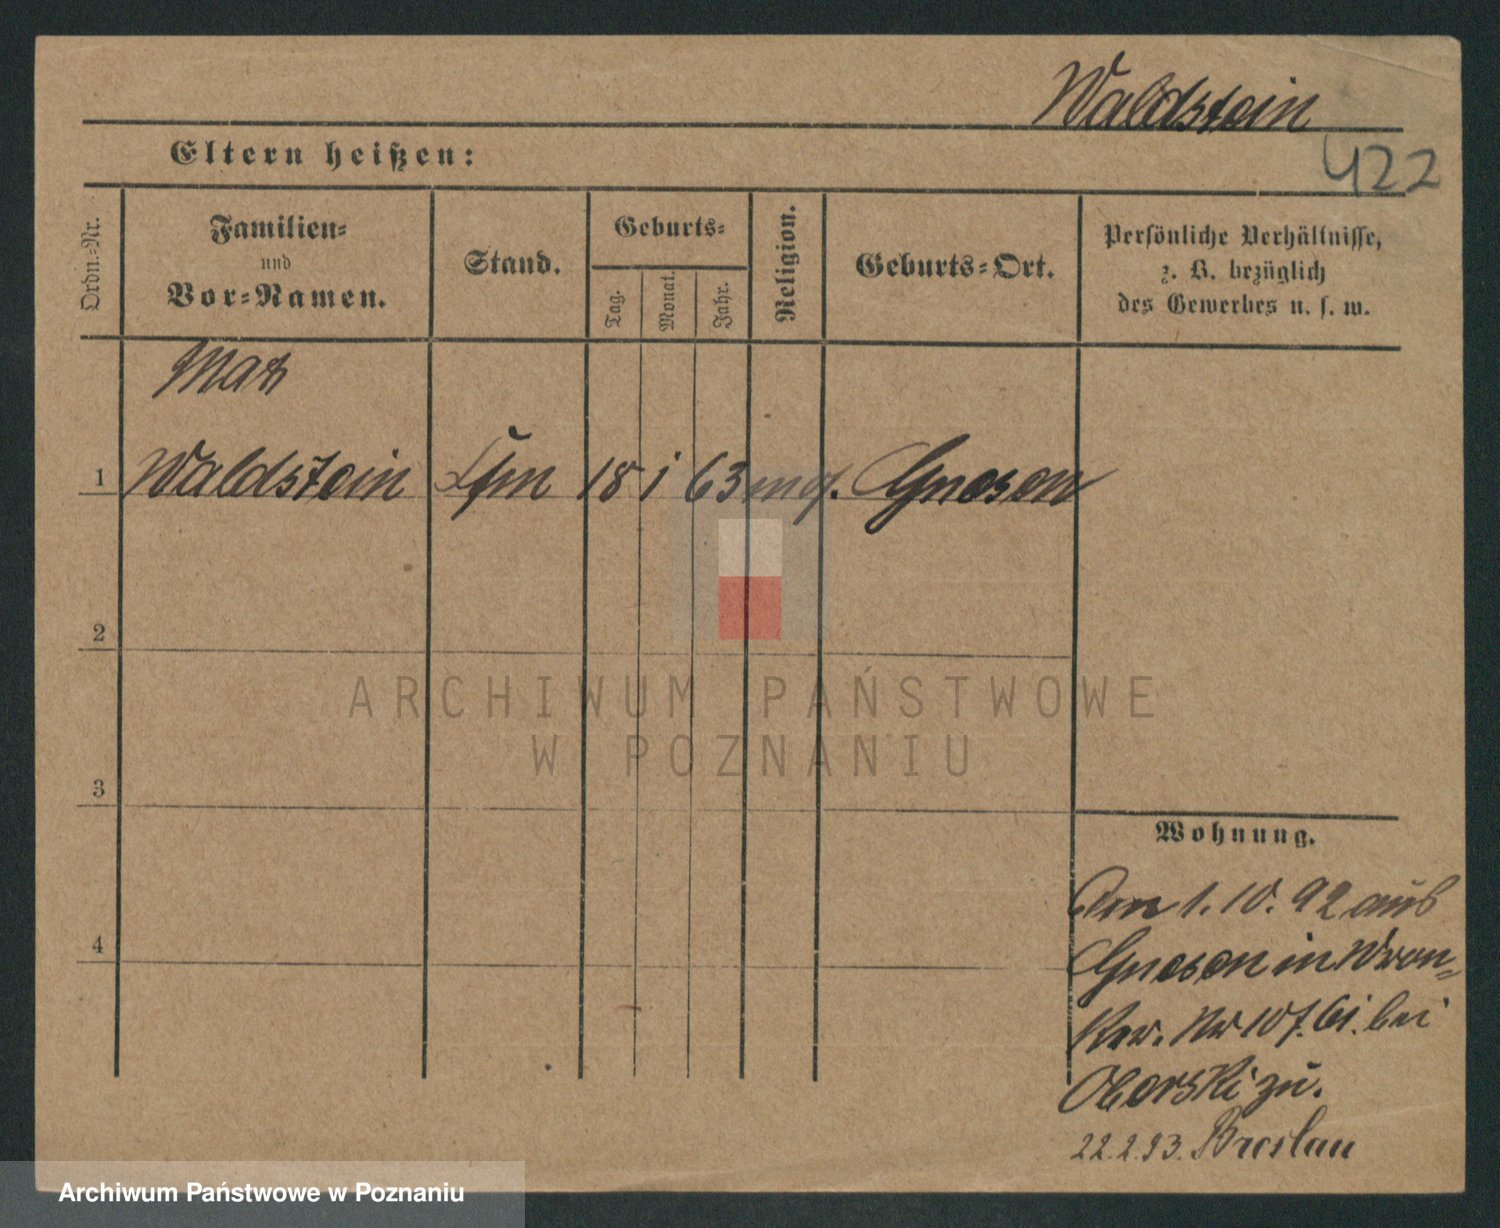 Waldstein
422
Eltern heißen:
Ordn.=Nr.
Familien=
und
Vor=Namen.
Stand.
Geburts=
Tag.
Monat.
Jahr.
Religion.
Geburts=Ort.
Persönliche Verhältnisse,
z. B. bezüglich
des Gewerbes u. s. w.
Max
1 Waldstein Kfm 18 1 63 mos. Gnesen
2
3
4
Wohnung.
1. 10. 92 aus
Gnesen in Wron=
Nr 10 bei
Oborski zu.
22.2.93. Breslau
ARCHIWUM PAŃSTWOWE
W POZNANIU
Archiwum Państwowe w Poznaniu